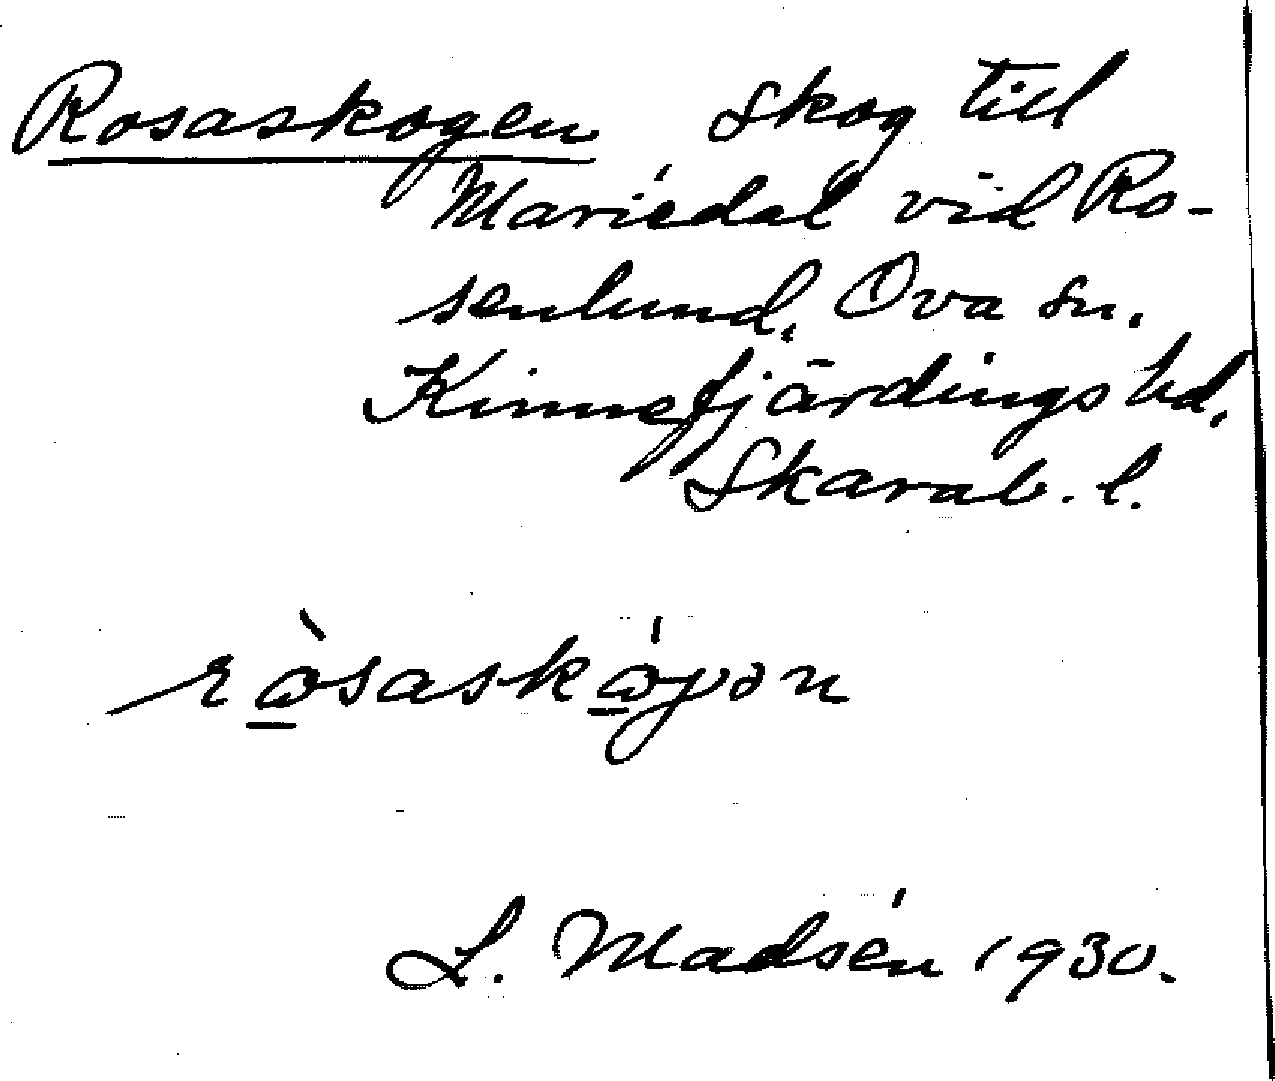 Rosaskogen skog till
Mariedal vid Ro-
senlund, Ova sn.
Kinnefjärdings hd,
Skarab. l.
L. Madsén 1930.